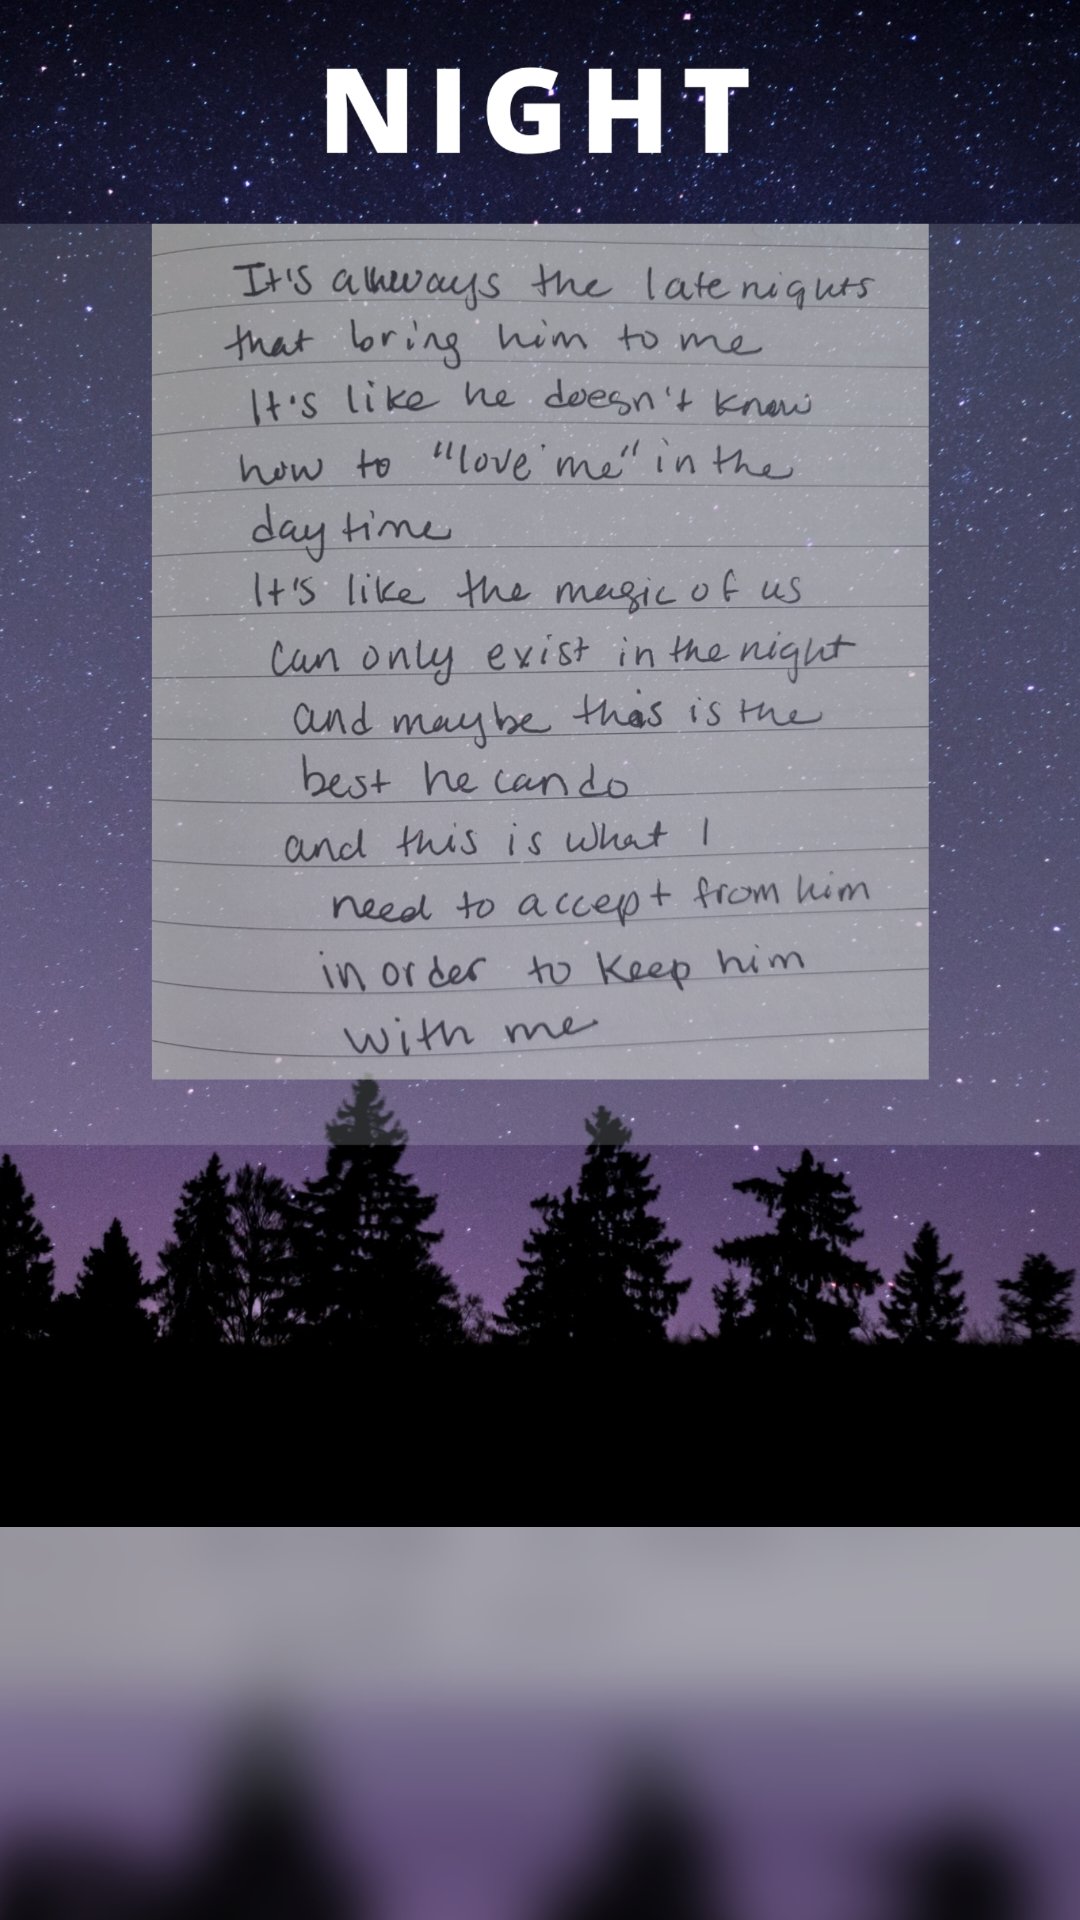 NIGHT
It's always the late nights
that bring him to me
It's like he doesn't know
how to "love me" in the
day time
It's like the magic of us
can only exist in the night
and maybe this is the
best he can do
and this is what I
need to accept from him
in order to keep him
with me